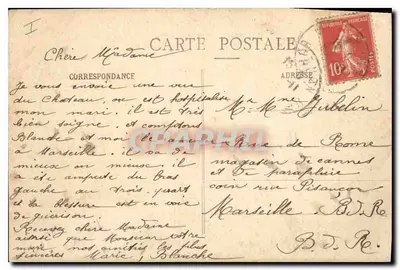 I
Chère Madame
CARTE POSTALE
CORRESPONDANCE
ADRESSE
REPUBLIQUE FRANÇAISE
10
Je vous envoie une vue
du Chateau, ou est hospitalisé
mon mari. il est très
bien soigné, et comptons
Blanche et moi
à Marseille. il va de
mieux en mieux il
a été amputé du bras
gauche au trois quart
et la blessure est en voie
de guérison.
Recevez chère Madame
ainsi que Monsieur
mari nos amitiés les plus
sincères Marie, Blanche
Mr Mme Jubelin
Rue de Rome
magasin de cannes
et de parapluie
coin rue Pisançon
Marseille B.d.R
B.d.R.
CPARAMA